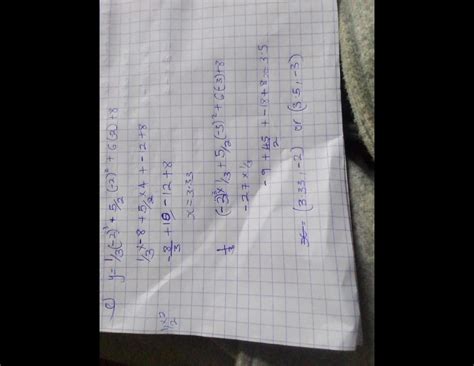 c) y = 1/3(-2)³ + 5/2(-2)² + 6(-2) + 8
1/3 x -8 + 5/2 x 4 + -12 + 8
-8/3 + 10 - 12 + 8
x = 3.33
1/3 (-3)³ x 1/3 + 5/2 (-3)² + 6(-3) + 8
-27 x 1/3
-9 + 45/2 + -18 + 8 = 3.5
(3.33, -2) or (3.5, -3)